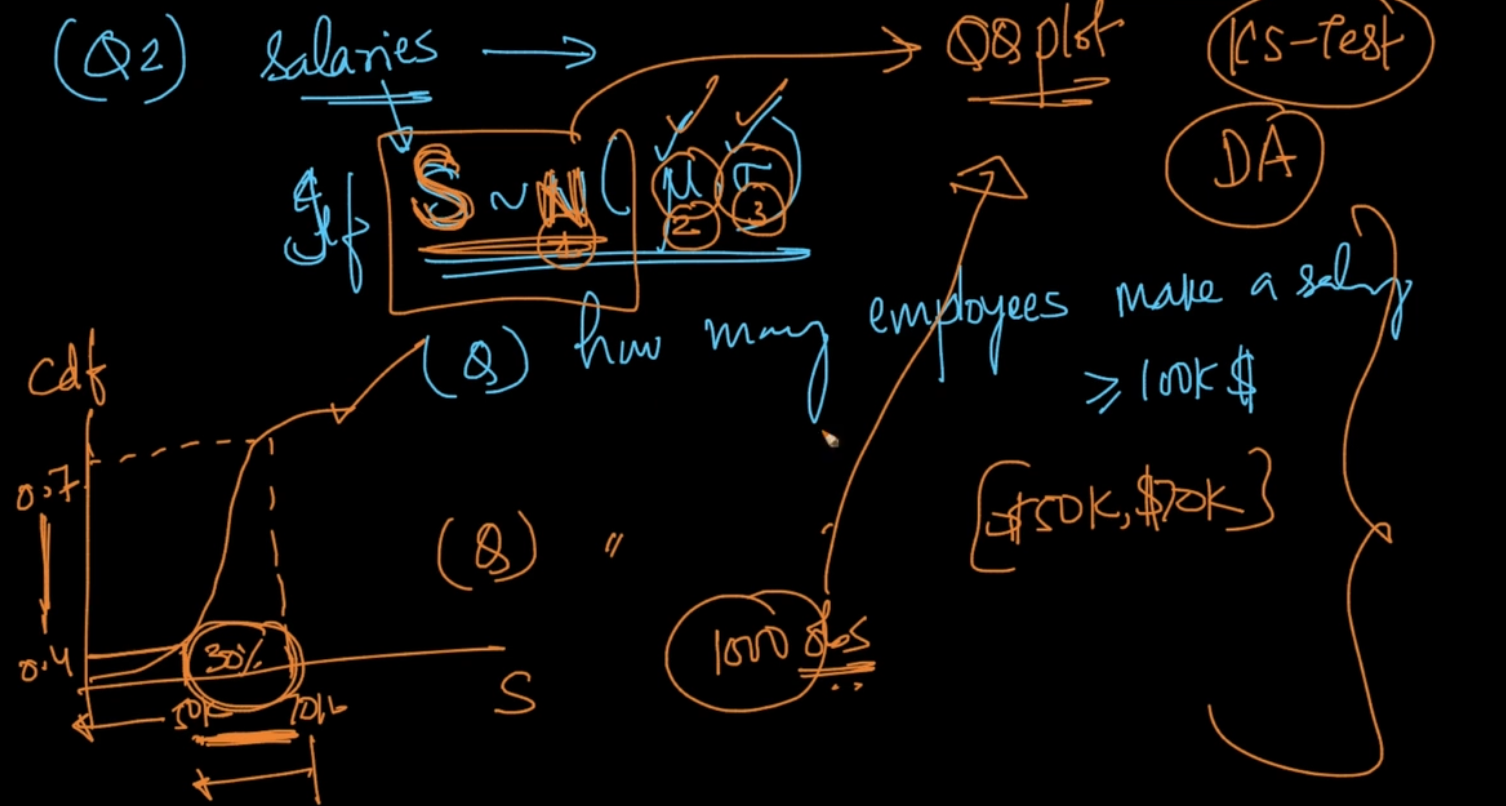 (Q2) salaries → QQ plot KS-Test
DA
If S ~ N(μ, σ)
1 2 3
(Q) how many employees make a salary
≥ 100K $
cdf
0.7
[$50K, $70K]
(Q) "
0.4
30%
1000 obs
50K 70K
S